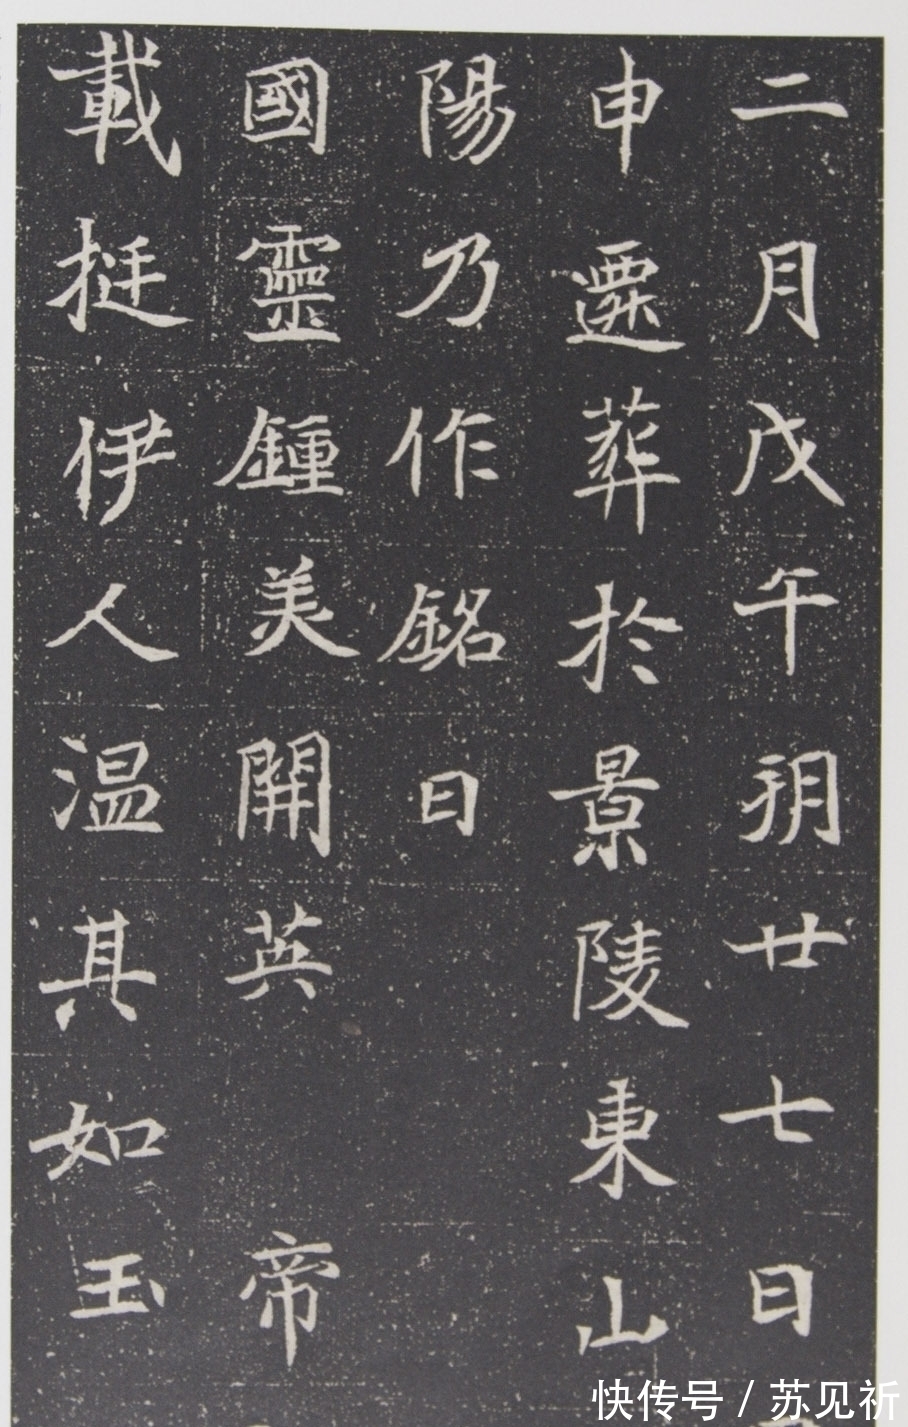 二月戊午朔廿七日
申遷葬於景陵東山
陽乃作銘曰
國靈鍾美開英 帝
載挺伊人温其如玉
快传号 / 苏见祈